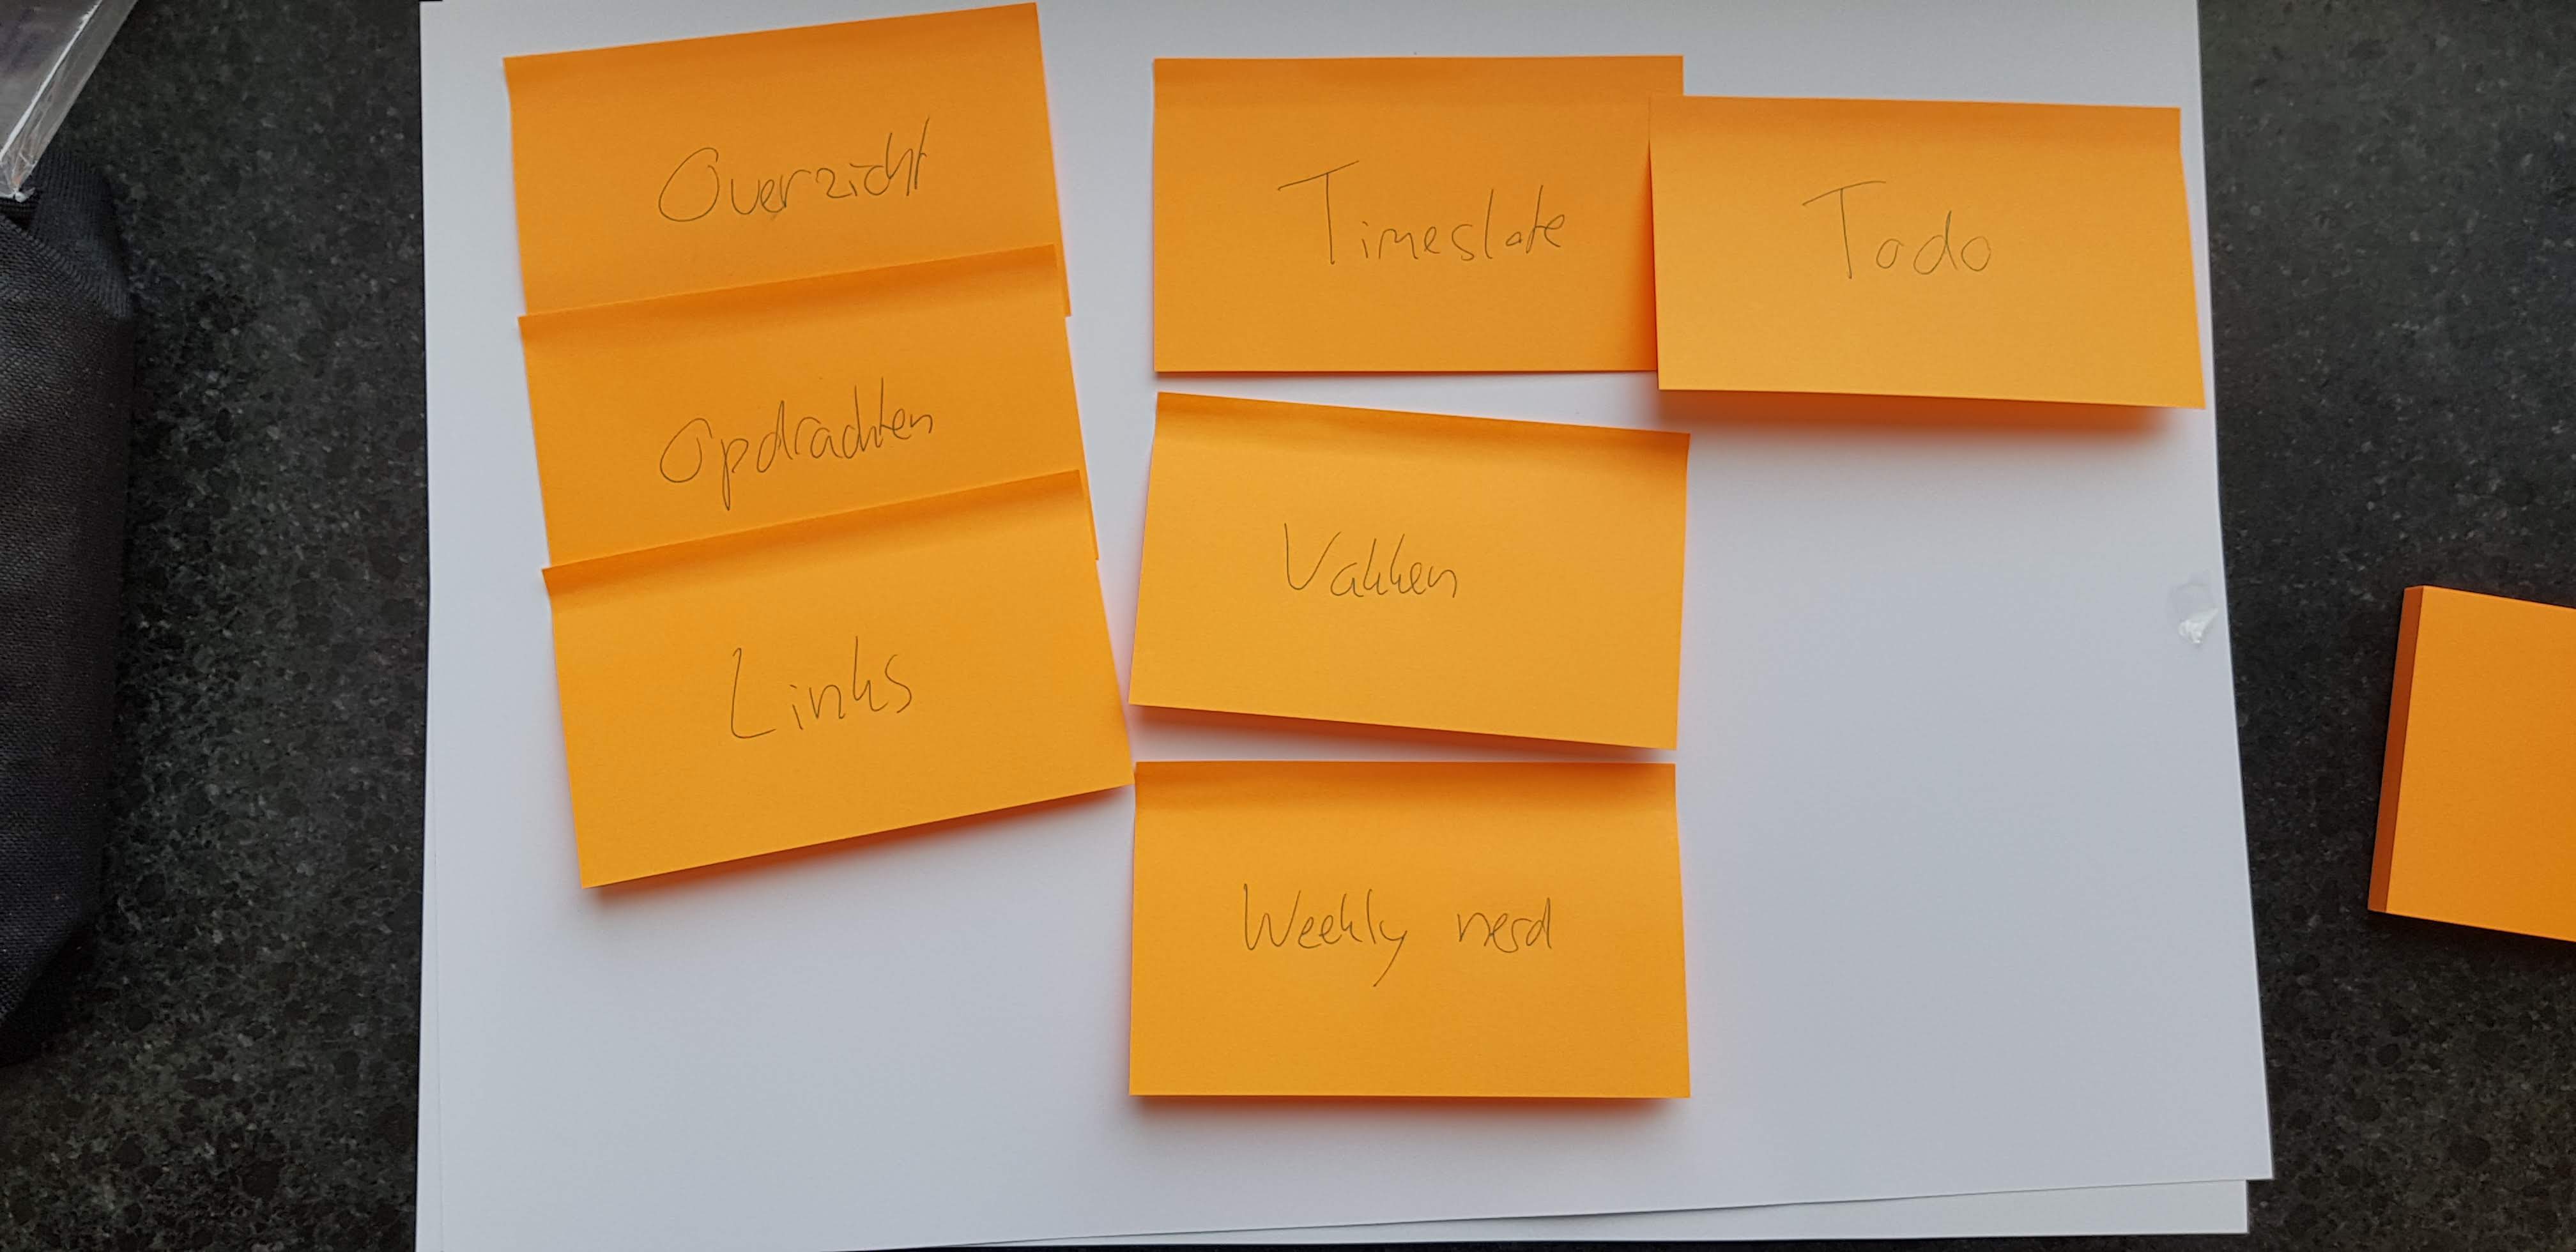 Overzicht
Opdrachten
Links
Timeslote
Todo
Vakken
Weekly nerd